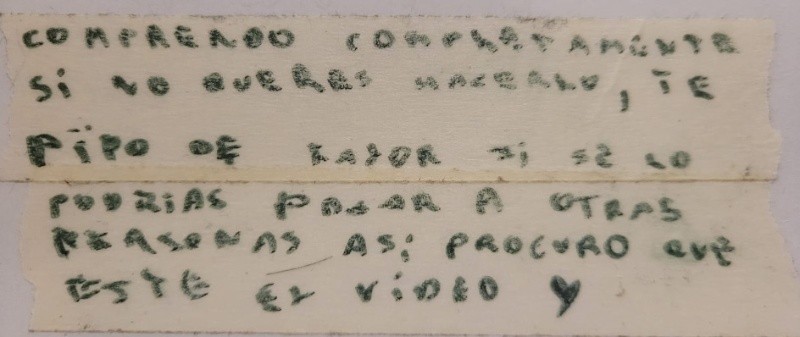 COMPRENDO COMPLETAMENTE
Si NO QUERES HACERLO, TE
PiDO DE FAVOR Si SE LO
PODRiAS PASAR A OTRAS
PERSONAS ASi PROCURO QUE
ESTE EL ViDEO